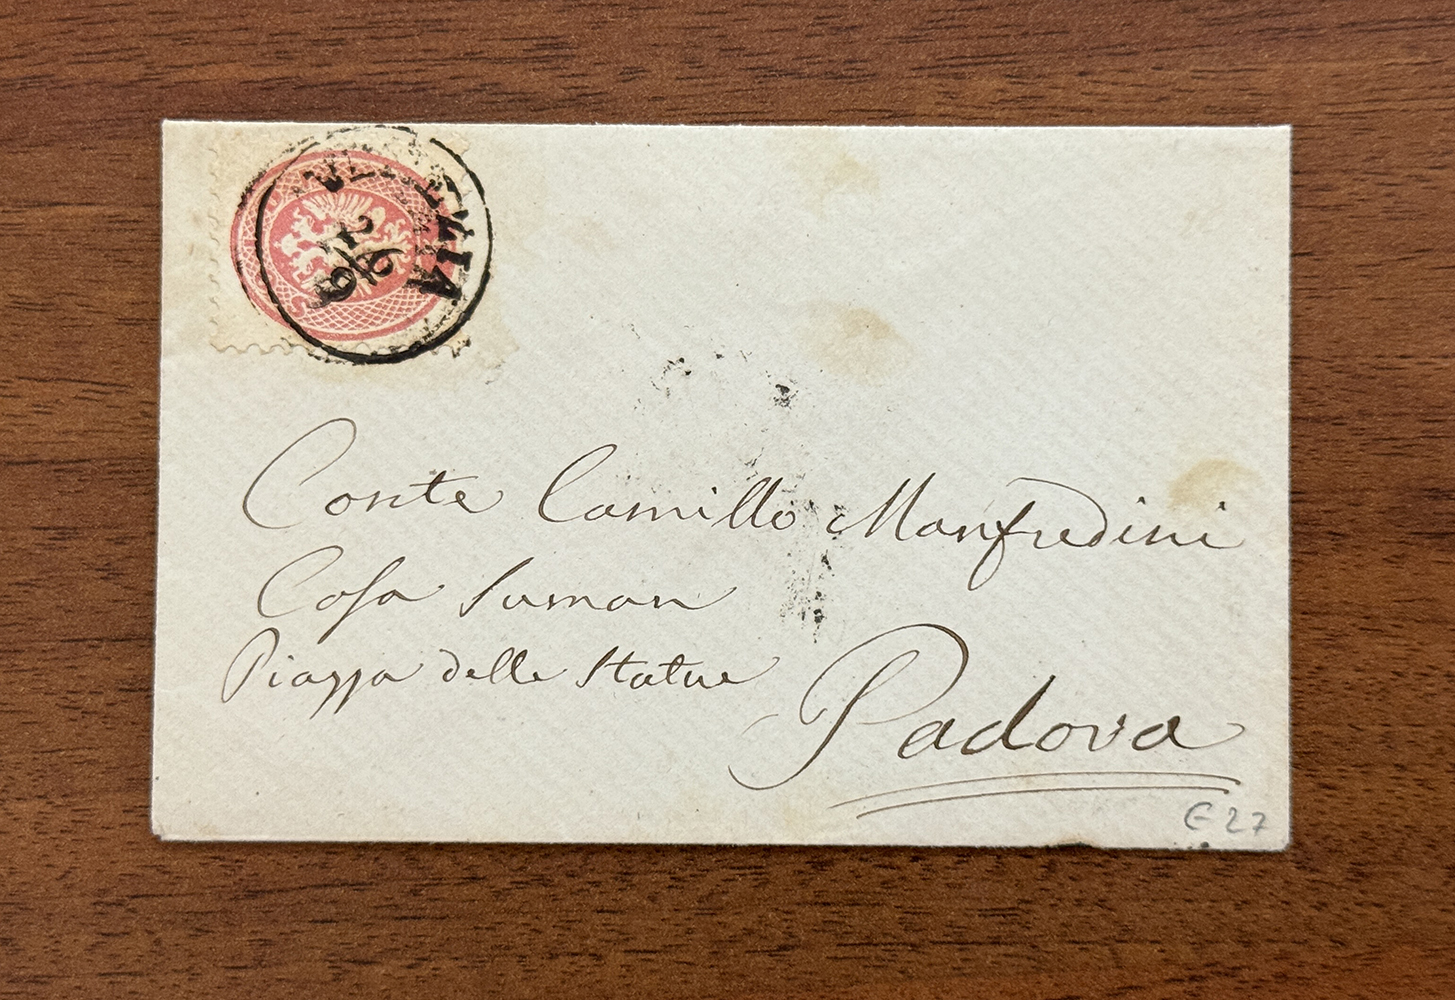 VENEZIA
Conte Camillo Manfredini
Casa Suman
Piazza delle Statue
Padova
€ 27